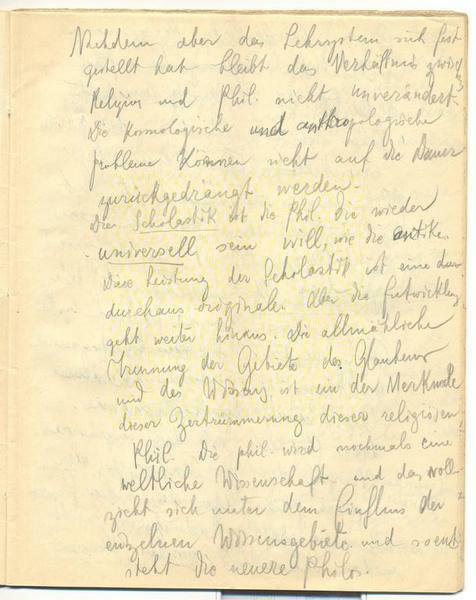 Nachdem aber das Lehrsystem sich fest
gestellt hat bleibt das Verhältnis zwisch
Religion und Phil. nicht unverändert.
Die kosmologische und anthropologische
probleme können nicht auf die Dauer
zurückgedrängt werden.
Die Scholastik ist die Phil. die wieder
universell sein will, wie die antike.
Diese Leistung der Scholastik ist eine
durchaus originale. Aber die Entwicklung
geht weiter hinaus. Die allmähliche
Trennung der Gebiete des Glaubens
und des Wissens, ist ein der Merkmale
dieser Zertrümmerung dieser religiösen
Phil. Die phil. wird nochmals eine
weltliche Wissenschaft und das voll-
zieht sich unter dem Einfluss der
einzelnen Wissensgebiete und so ent-
steht die neuere Philos.